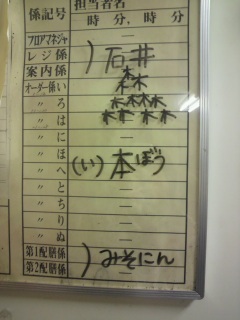 係記号 担当者名
時 分， 時 分
フロアマネジャ —
レジ係 ) 石井
案内係
オーダー係い 森
〃 ろ 森森
〃 は
〃 に —
〃 ほ (い) 本ぼう
〃 へ —
〃 と —
〃 ち —
〃 り —
〃 ぬ —
第1配膳係 ) みそにん
第2配膳係